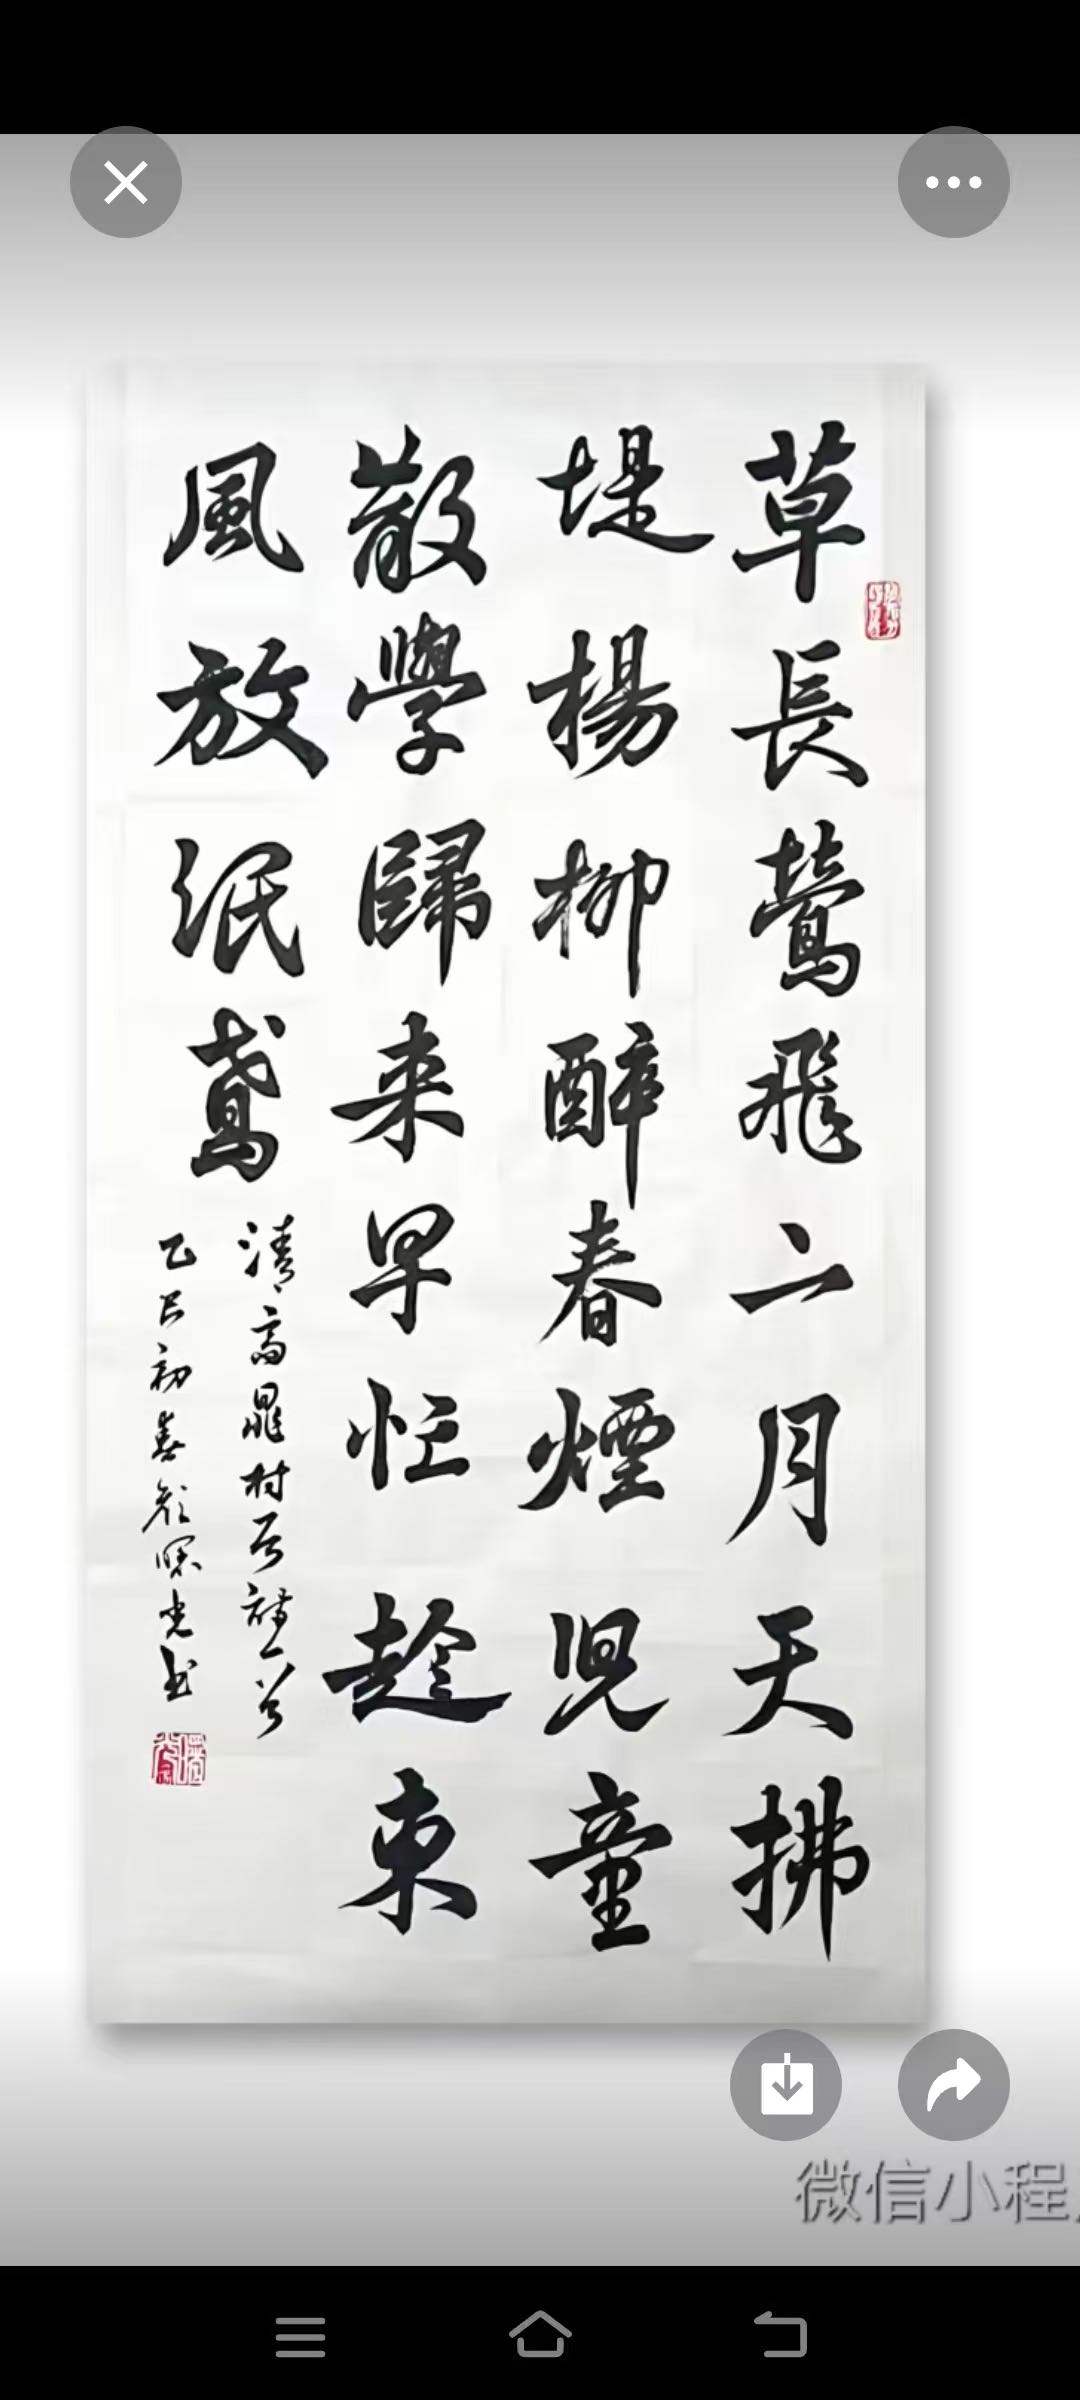 草長鶯飛二月天拂
堤楊柳醉春煙児童
散學歸来早忙趁東
風放紙鳶
清高鼎村居詩一首
乙巳初春顏曙光书
微信小程